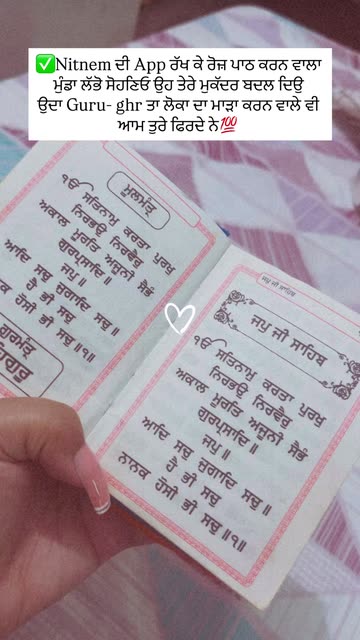 ✅Nitnem ਦੀ App ਰੱਖ ਕੇ ਰੋਜ਼ ਪਾਠ ਕਰਨ ਵਾਲਾ
ਮੁੰਡਾ ਲੱਭੋ ਸੋਹਣਿਓ ਉਹ ਤੇਰੇ ਮੁਕੱਦਰ ਬਦਲ ਦਿਉ
ਉਦਾ Guru- ghr ਤਾ ਲੋਕਾ ਦਾ ਮਾੜਾ ਕਰਨ ਵਾਲੇ ਵੀ
ਆਮ ਤੁਰੇ ਫਿਰਦੇ ਨੇ💯
ਮੂਲਮੰਤ੍ਰ
ੴ ਸਤਿਨਾਮੁ ਕਰਤਾ ਪੁਰਖੁ
ਨਿਰਭਉ ਨਿਰਵੈਰੁ
ਅਕਾਲ ਮੂਰਤਿ ਅਜੂਨੀ ਸੈਭੰ
ਗੁਰਪ੍ਰਸਾਦਿ॥
ਜਪੁ॥
ਆਦਿ ਸਚੁ ਜੁਗਾਦਿ ਸਚੁ॥
ਹੈ ਭੀ ਸਚੁ
ਹੋਸੀ ਭੀ ਸਚੁ॥੧॥
ਗੁਰਮੰਤ੍ਰ
ਜਪੁ ਜੀ ਸਾਹਿਬ
ਜਪੁ ਜੀ ਸਾਹਿਬ
ੴ ਸਤਿਨਾਮੁ ਕਰਤਾ ਪੁਰਖੁ
ਨਿਰਭਉ ਨਿਰਵੈਰੁ
ਅਕਾਲ ਮੂਰਤਿ ਅਜੂਨੀ ਸੈਭੰ
ਗੁਰਪ੍ਰਸਾਦਿ॥
ਜਪੁ॥
ਆਦਿ ਸਚੁ ਜੁਗਾਦਿ ਸਚੁ॥
ਹੈ ਭੀ ਸਚੁ
ਨਾਨਕ ਹੋਸੀ ਭੀ ਸਚੁ॥੧॥